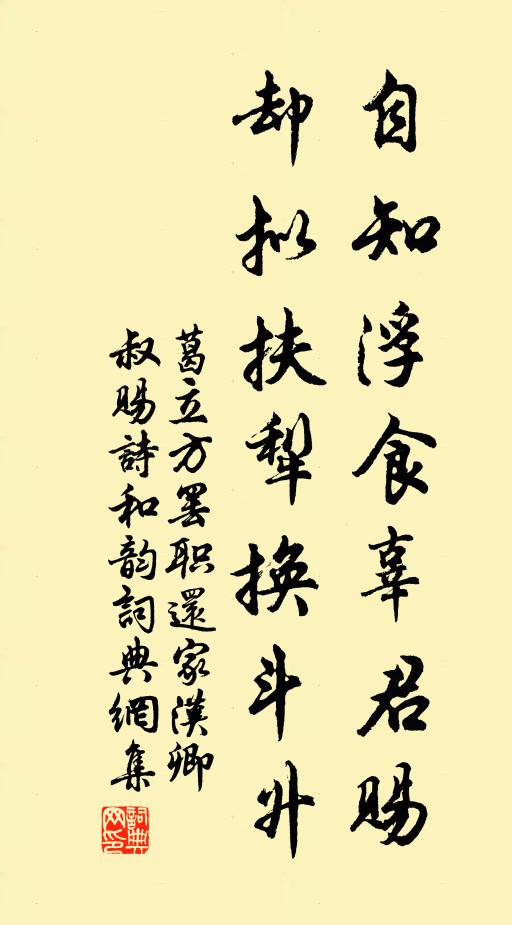 自知浮食辜君賜
却拟扶犁換斗升
葛立方罢职還家漢卿
叔賜詩和韵詞典網集
詞典網印